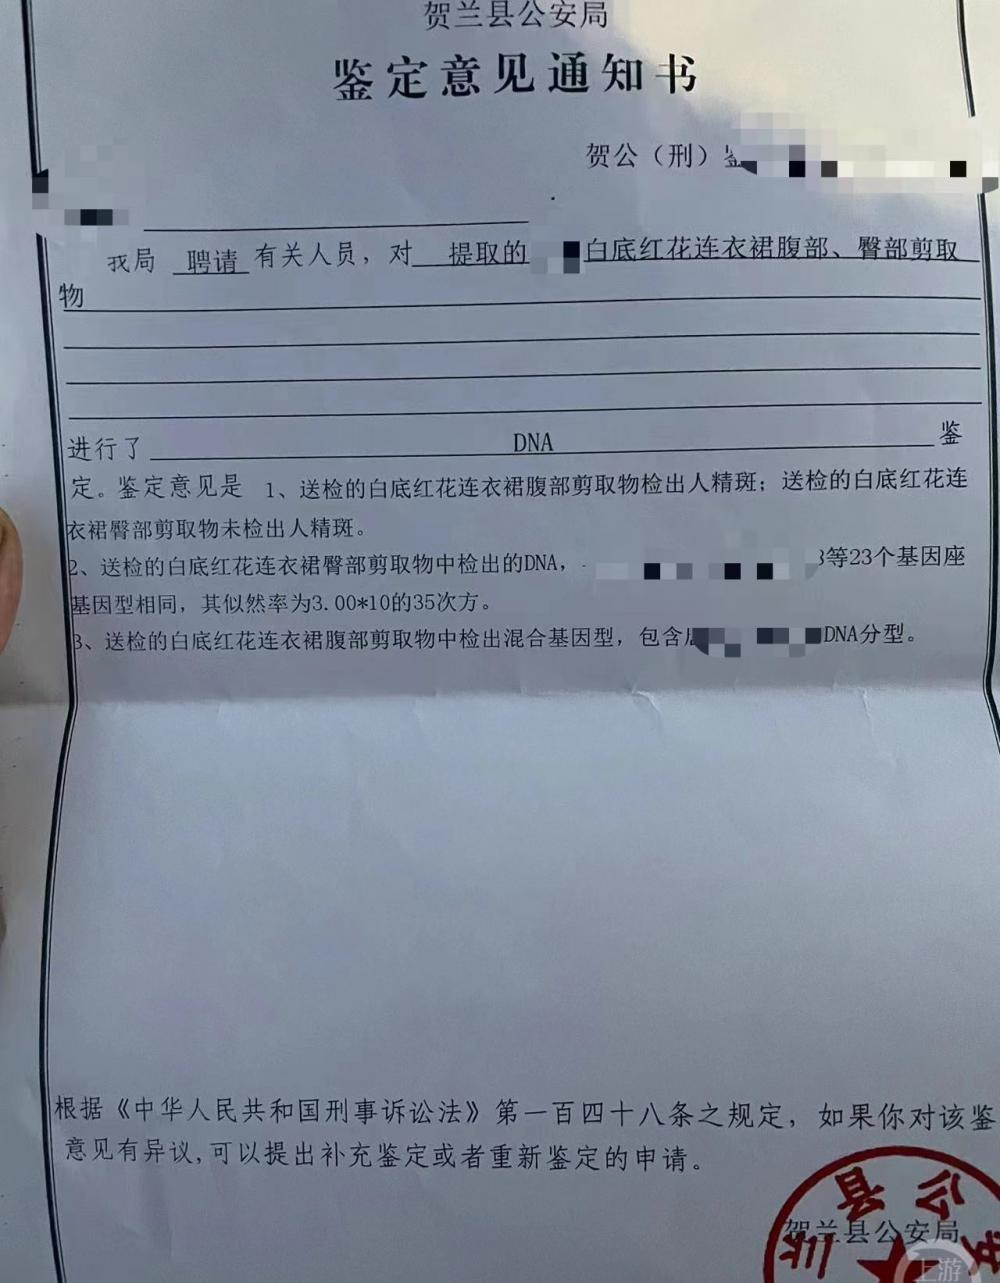 贺兰县公安局
鉴定意见通知书
贺公（刑）鉴
我局 聘请 有关人员，对 提取的 白底红花连衣裙腹部、臀部剪取
物
进行了 DNA 鉴
定。鉴定意见是 1、送检的白底红花连衣裙腹部剪取物检出人精斑；送检的白底红花连
衣裙臀部剪取物未检出人精斑。
2、送检的白底红花连衣裙臀部剪取物中检出的DNA， 等23个基因座
基因型相同，其似然率为3.00*10的35次方。
3、送检的白底红花连衣裙腹部剪取物中检出混合基因型，包含 DNA分型。
根据《中华人民共和国刑事诉讼法》第一百四十八条之规定，如果你对该鉴
意见有异议,可以提出补充鉴定或者重新鉴定的申请。
县公
贺兰县公安局
上游